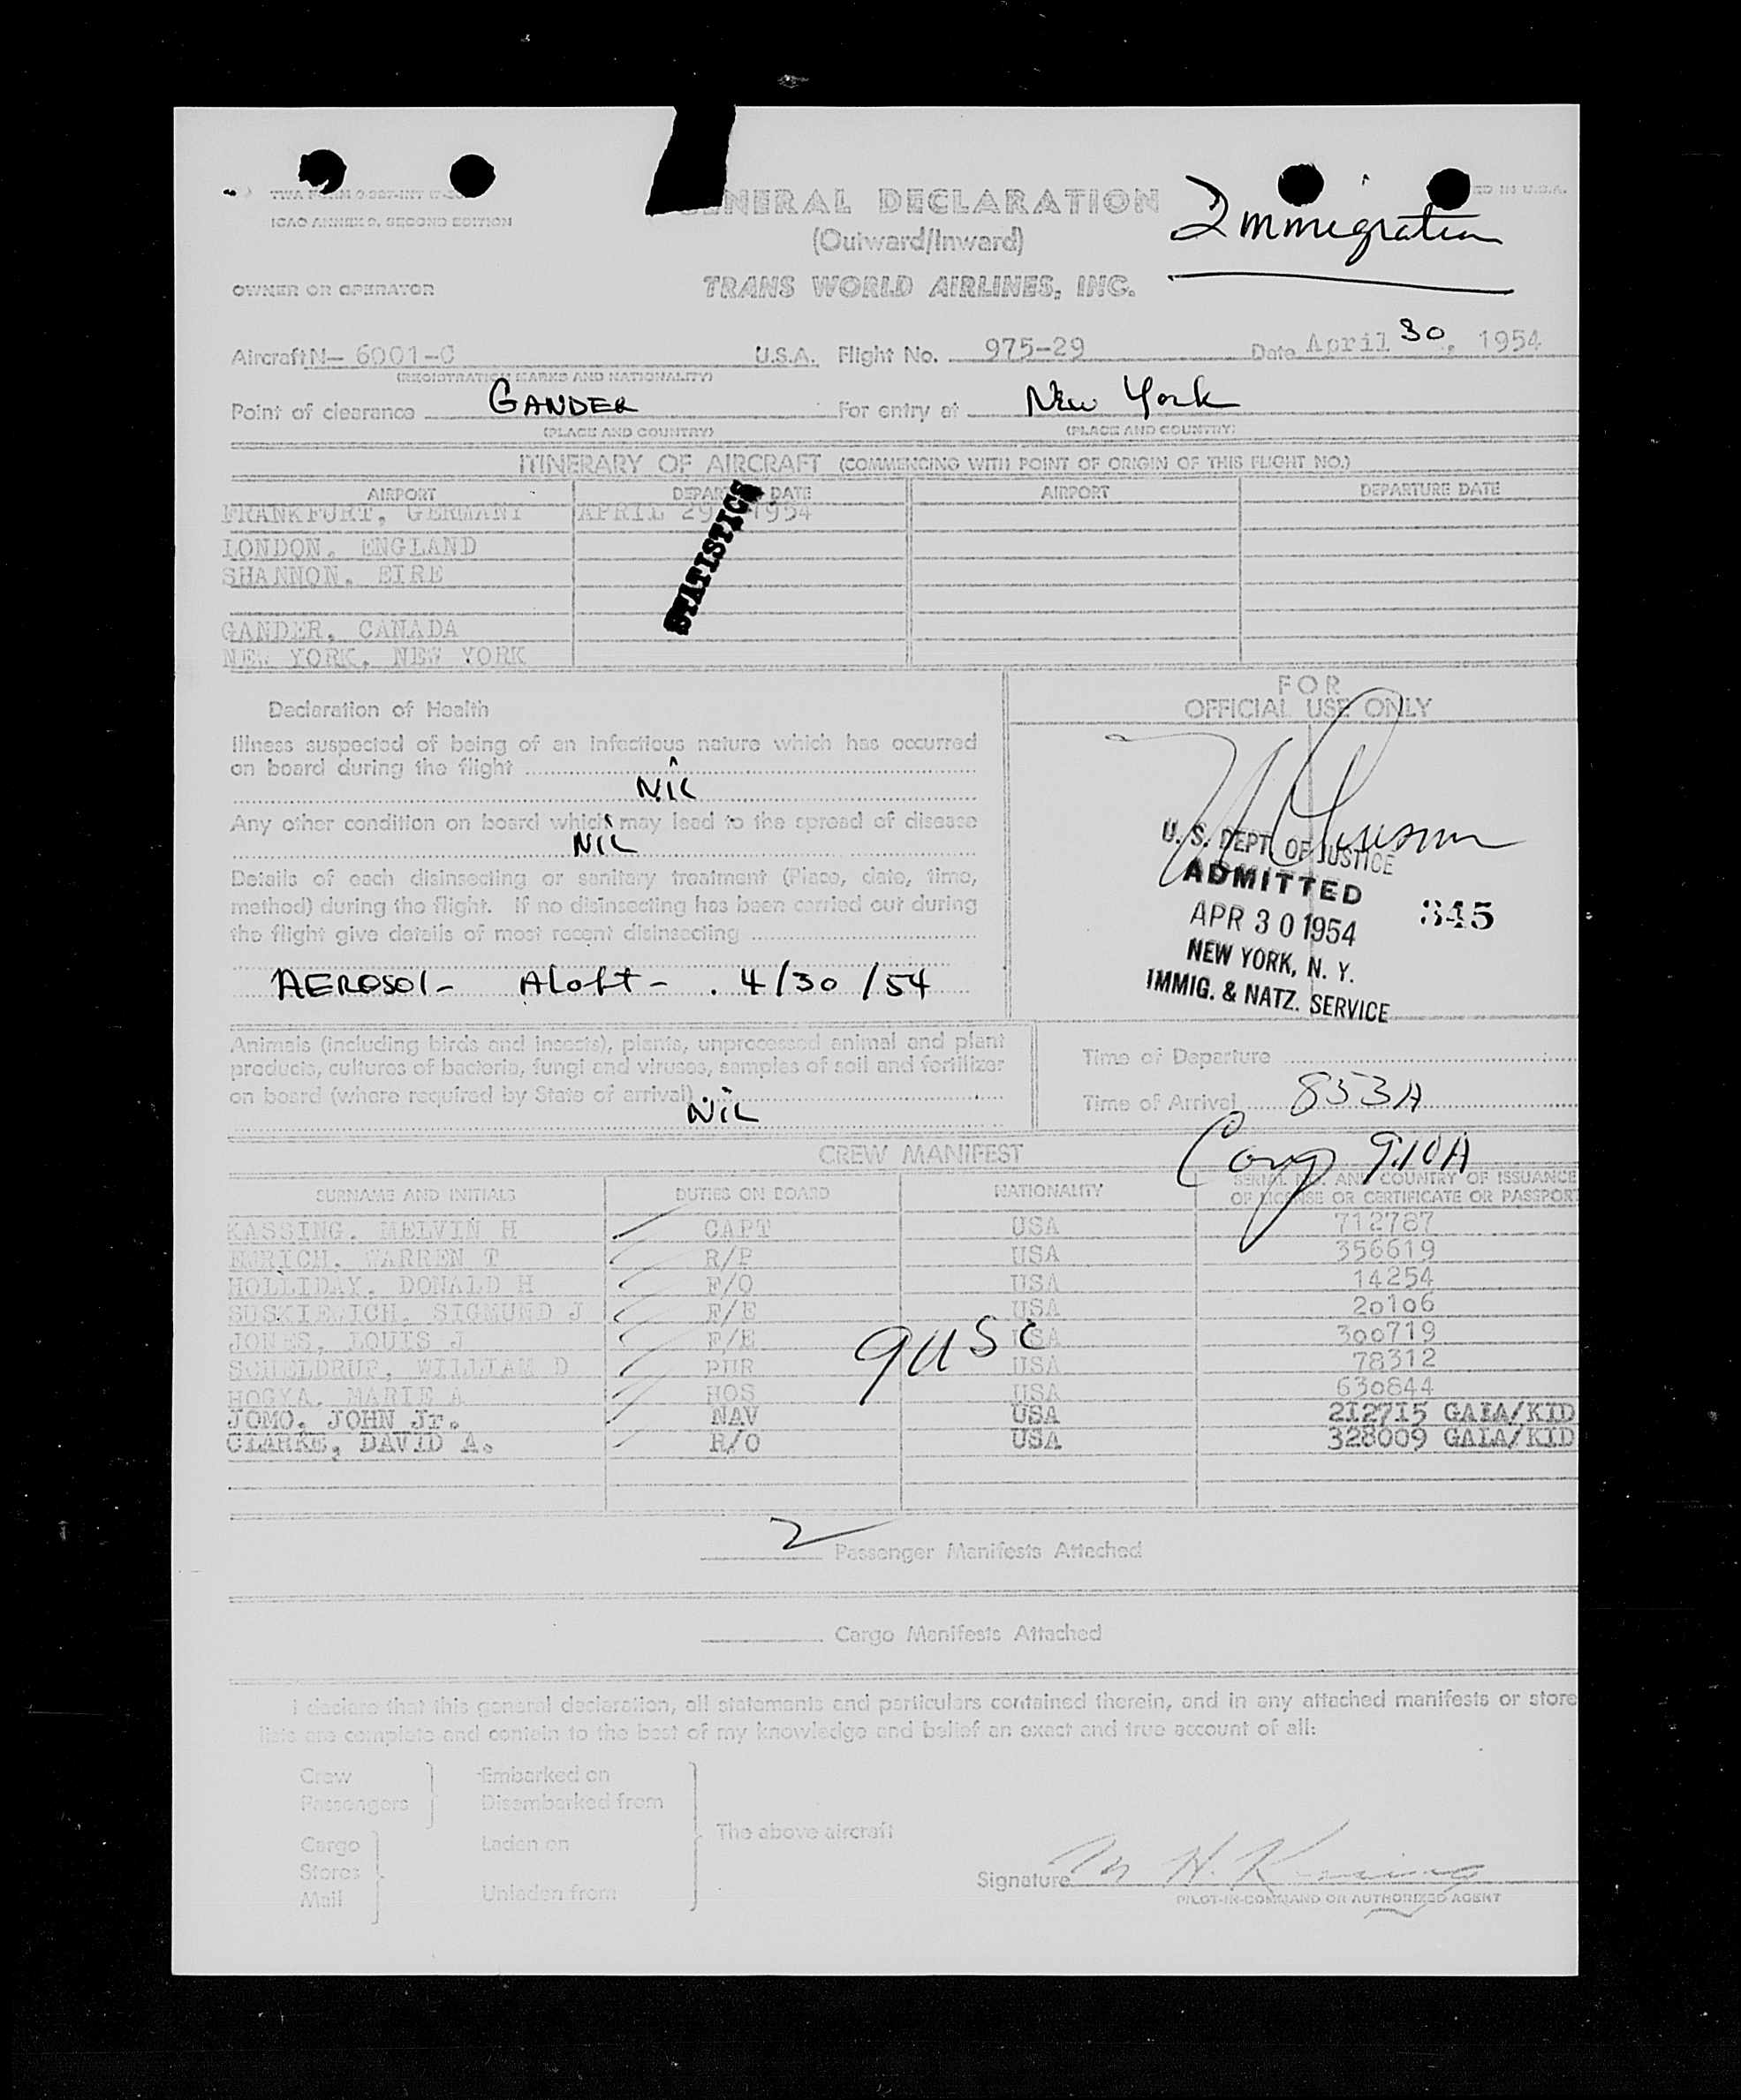 ICAO ANNEX 9, SECOND EDITION
GENERAL DECLARATION
(Outward/Inward)
Immigration
OWNER OR OPERATOR
TRANS WORLD AIRLINES, INC.
Aircraft N- 6001-C U.S.A. Flight No. 975-29 Date April 30, 1954
(REGISTRATION MARKS AND NATIONALITY)
Point of clearance GANDER For entry at New York
(PLACE AND COUNTRY) (PLACE AND COUNTRY)
ITINERARY OF AIRCRAFT (COMMENCING WITH POINT OF ORIGIN OF THIS FLIGHT NO.)
AIRPORT DEPARTURE DATE AIRPORT DEPARTURE DATE
FRANKFURT, GERMANY APRIL 29 1954
LONDON, ENGLAND
SHANNON, EIRE
STATISTICS
GANDER, CANADA
NEW YORK, NEW YORK
FOR
OFFICIAL USE ONLY
Declaration of Health
Illness suspected of being of an infectious nature which has occurred
on board during the flight
NIL
Any other condition on board which may lead to the spread of disease
NIL
Details of each disinsecting or sanitary treatment (Place, date, time,
method) during the flight. If no disinsecting has been carried out during
the flight give details of most recent disinsecting
AEROSOL - Aloft - . 4/30/54
U. S. DEPT. OF JUSTICE
ADMITTED
APR 30 1954 345
NEW YORK, N. Y.
IMMIG. & NATZ. SERVICE
Animals (including birds and insects), plants, unprocessed animal and plant
products, cultures of bacteria, fungi and viruses, samples of soil and fertilizer
on board (where required by State of arrival)
NIL
Time of Departure
Time of Arrival 853A
Cong 9:10A
CREW MANIFEST
SURNAME AND INITIALS DUTIES ON BOARD NATIONALITY SERIAL NO. AND COUNTRY OF ISSUANCE
OF LICENSE OR CERTIFICATE OR PASSPORT
KASSING, MELVIN H CAPT USA 712787
EMRICH, WARREN T R/P USA 356619
HOLLIDAY, DONALD H F/O USA 14254
SUSKIEWICH, SIGMUND J F/E USA 20106
JONES, LOUIS J F/E USA 300719
SCHELDRUP, WILLIAM D PUR USA 78312
HOGYA, MARIE A HOS USA 630844
JOMO, JOHN Jr. NAV USA 212715 GAIA/KID
CLARKE, DAVID A. R/O USA 328009 GAIA/KID
9 USC
2 Passenger Manifests Attached
Cargo Manifests Attached
I declare that this general declaration, all statements and particulars contained therein, and in any attached manifests or store
lists are complete and contain to the best of my knowledge and belief an exact and true account of all:
Crew Embarked on
Passengers Disembarked from
The above aircraft
Cargo Laden on
Stores
Mail Unladen from
Signature M H. Kassing
PILOT-IN-COMMAND OR AUTHORIZED AGENT